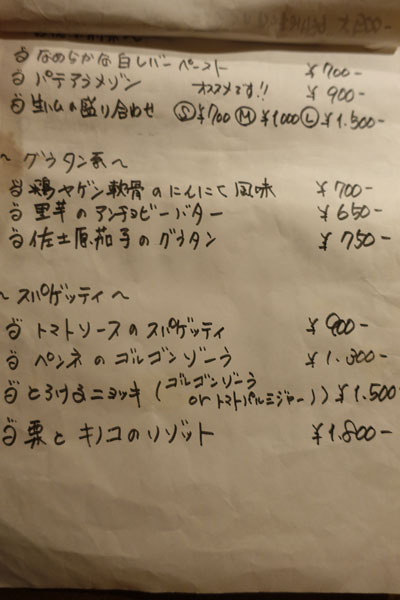 なめらかな白レバーペースト ¥700-
パテアラメゾン オススメです!! ¥900-
生ハムの盛り合わせ Ⓢ¥700 Ⓜ¥1000 Ⓛ¥1.500-
~ グラタン系 ~
鶏ヤゲン軟骨のにんにく風味 ¥700-
里芋のアンチョビーバター ¥650-
佐土原茄子のグラタン ¥750-
~ スパゲッティ ~
トマトソースのスパゲッティ ¥900-
ペンネのゴルゴンゾーラ ¥1.300-
とろけるニョッキ (ゴルゴンゾーラ
or トマトパルミジャーノ) ¥1.500-
栗とキノコのリゾット ¥1.800-